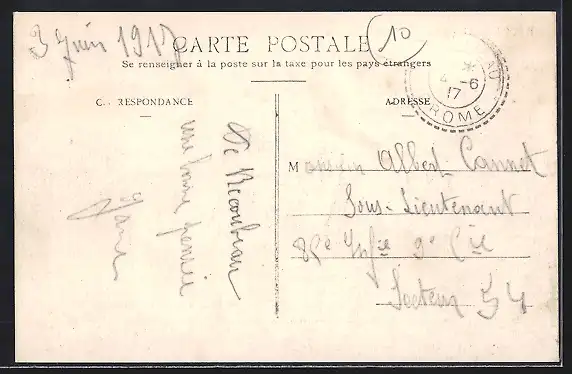 3 Juin 1917
CARTE POSTALE
10
Se renseigner à la poste sur la taxe pour les pays étrangers
CORRESPONDANCE
ADRESSE
4 -6
17
DROME
De Recoubeau
une bonne pensée
Monsieur Albert Cannet
Sous-Lieutenant
85e Infie 9e Cie
Secteur 54